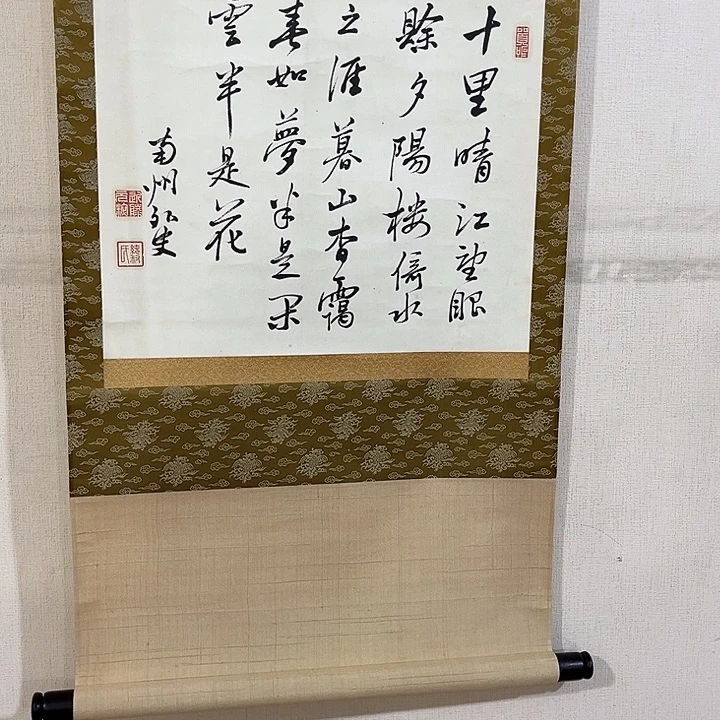 十里晴江望眼
賒夕陽楼倚水
之涯暮山杳靄
春如夢半是閑
雲半是花
南州